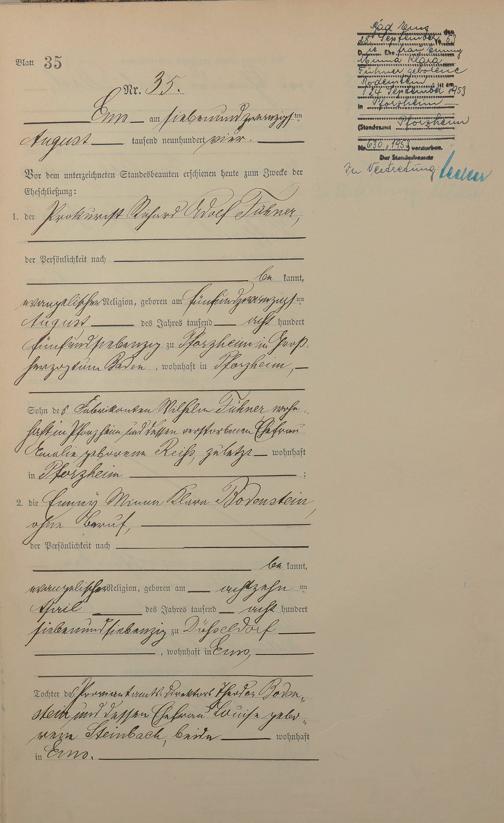 Blatt 35
Nr. 35.
Ems am siebenundzwanzigsten
August tausend neunhundert vier.
Vor dem unterzeichneten Standesbeamten erschienen heute zum Zwecke der
Eheschließung:
1. der Prokurist Richard Adolf Fühner,
der Persönlichkeit nach
be kannt,
evangelischer Religion, geboren am fünfundzwanzigsten
August des Jahres tausend acht hundert
fünfundsiebenzig zu Pforzheim in Groß-
herzogtum Baden, wohnhaft in Pforzheim,
Sohn des Fabrikanten Wilhelm Fühner, wohn-
haft in Pforzheim und dessen verstorbenen Ehefrau
Amalie geborene Reiß, zuletzt wohnhaft
in Pforzheim ;
2. die Fanny Minna Klara Bodenstein,
ohne Beruf,
der Persönlichkeit nach
be kannt,
evangelischer Religion, geboren am achtzehn ten
April des Jahres tausend acht hundert
siebenundsiebenzig zu Düsseldorf
, wohnhaft in Ems,
Tochter des Proviantamts direktors Theodor Boden-
stein und dessen Ehefrau Louise gebo-
rene Steinbach, beide wohnhaft
in Ems.
Bad Ems den
28. September
Die Ehefrau Fanny
Minna Klara
Fühner geborene
Bodenstein ist am
September 1953
in Pforzheim
(Standesamt Pforzheim
Nr. 630, 1953) verstorben.
Der Standesbeamte
In Vertretung